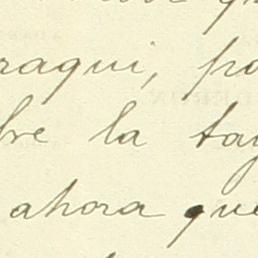 raqui, po
bre la tag
ahora que